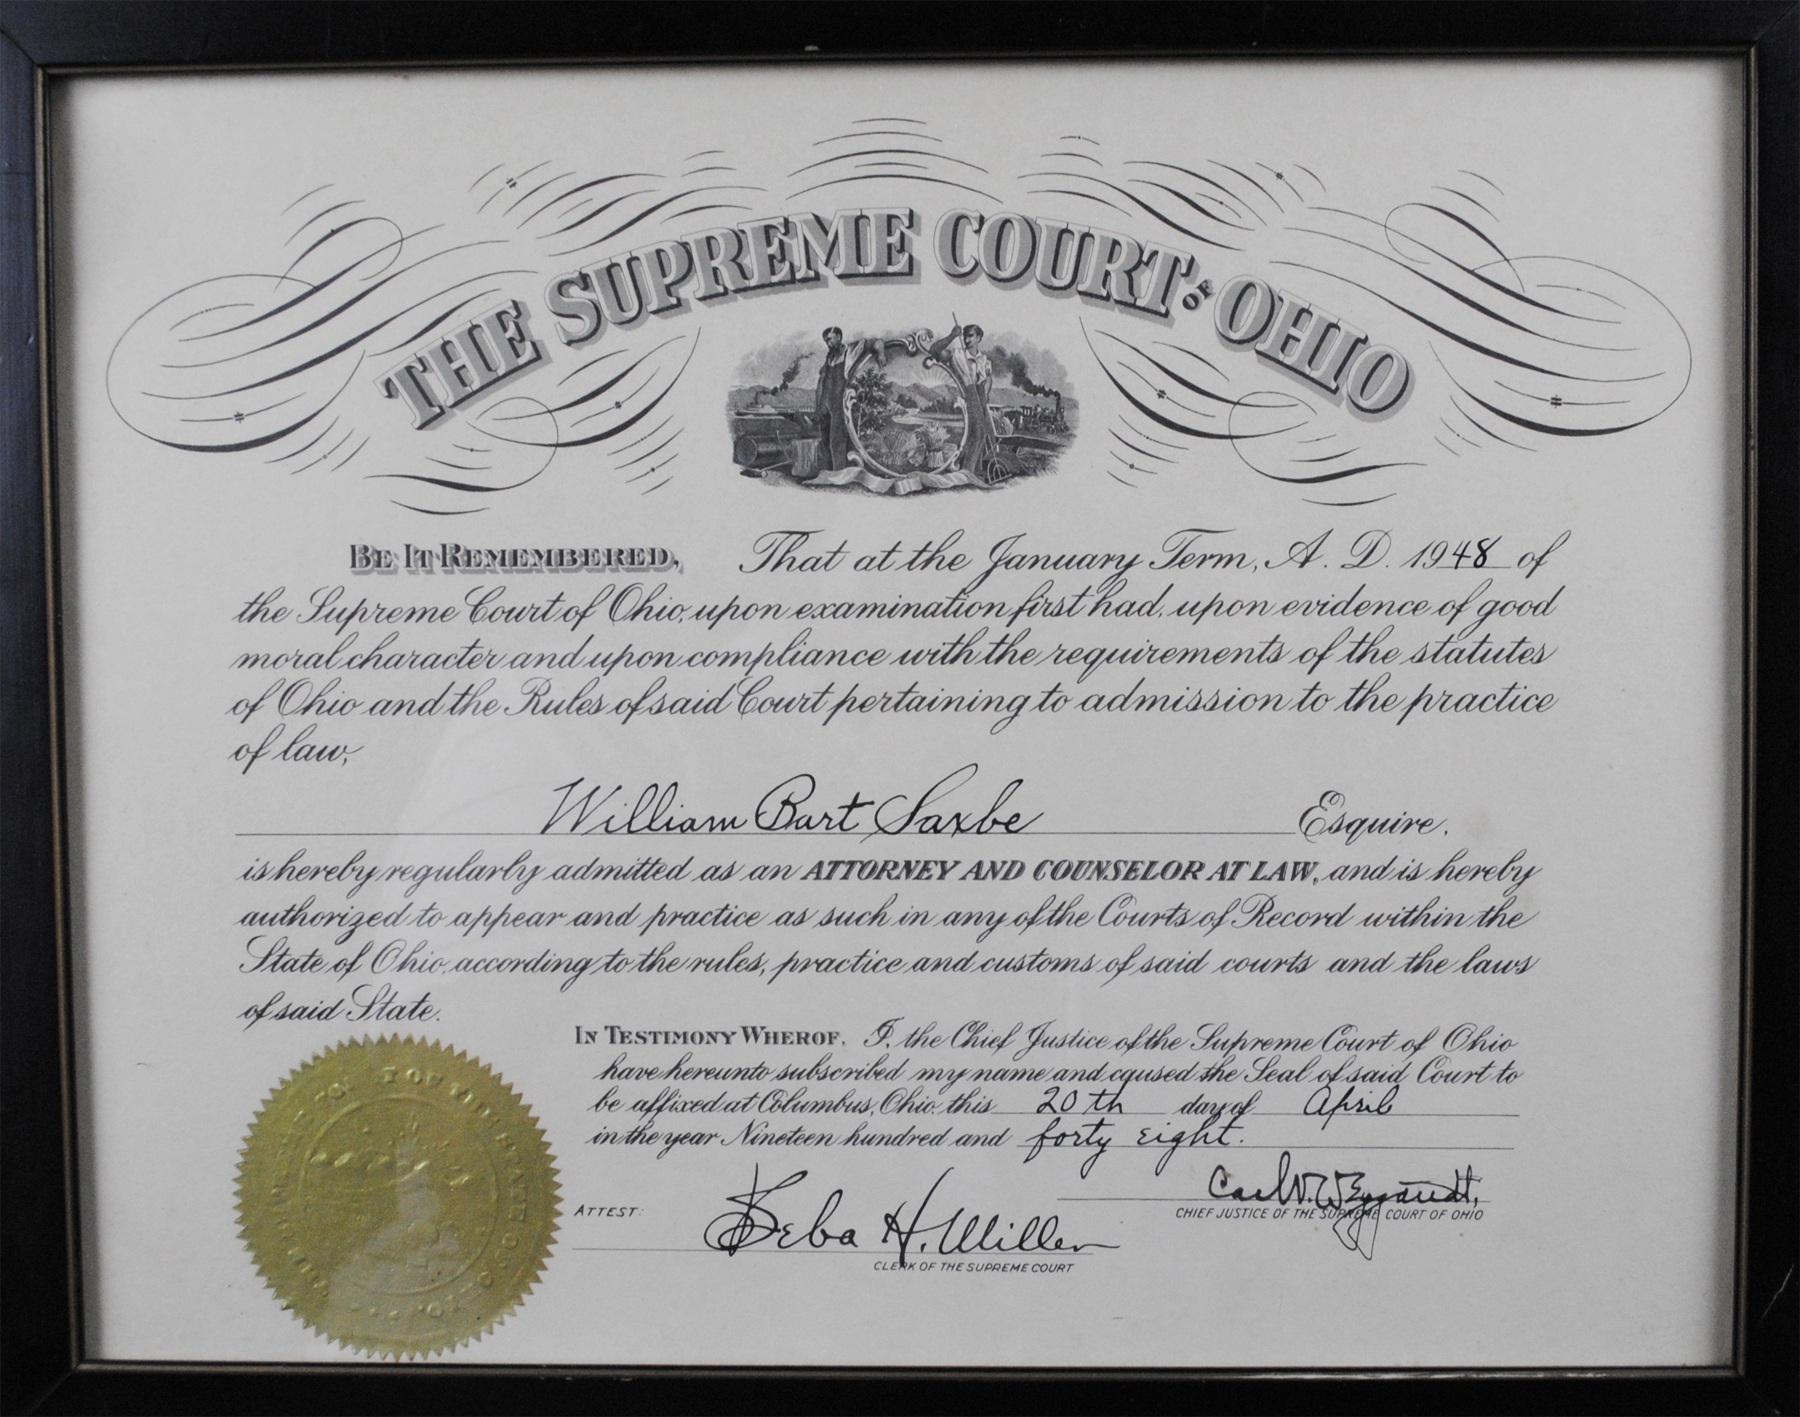 THE SUPREME COURT OF OHIO
BE IT REMEMBERED, That at the January Term, A. D. 1948 of
the Supreme Court of Ohio, upon examination first had, upon evidence of good
moral character and upon compliance with the requirements of the statutes
of Ohio and the Rules of said Court pertaining to admission to the practice
of law,
William Bart Saxbe Esquire.
is hereby regularly admitted as an ATTORNEY AND COUNSELOR AT LAW, and is hereby
authorized to appear and practice as such in any of the Courts of Record within the
State of Ohio, according to the rules, practice and customs of said courts and the laws
of said State.
IN TESTIMONY WHEROF, I, the Chief Justice of the Supreme Court of Ohio
have hereunto subscribed my name and caused the Seal of said Court to
be affixed at Columbus, Ohio, this 20th day of April
in the year Nineteen hundred and forty eight.
Carl V. Weygandt,
CHIEF JUSTICE OF THE SUPREME COURT OF OHIO
ATTEST: Seba H. Miller
CLERK OF THE SUPREME COURT